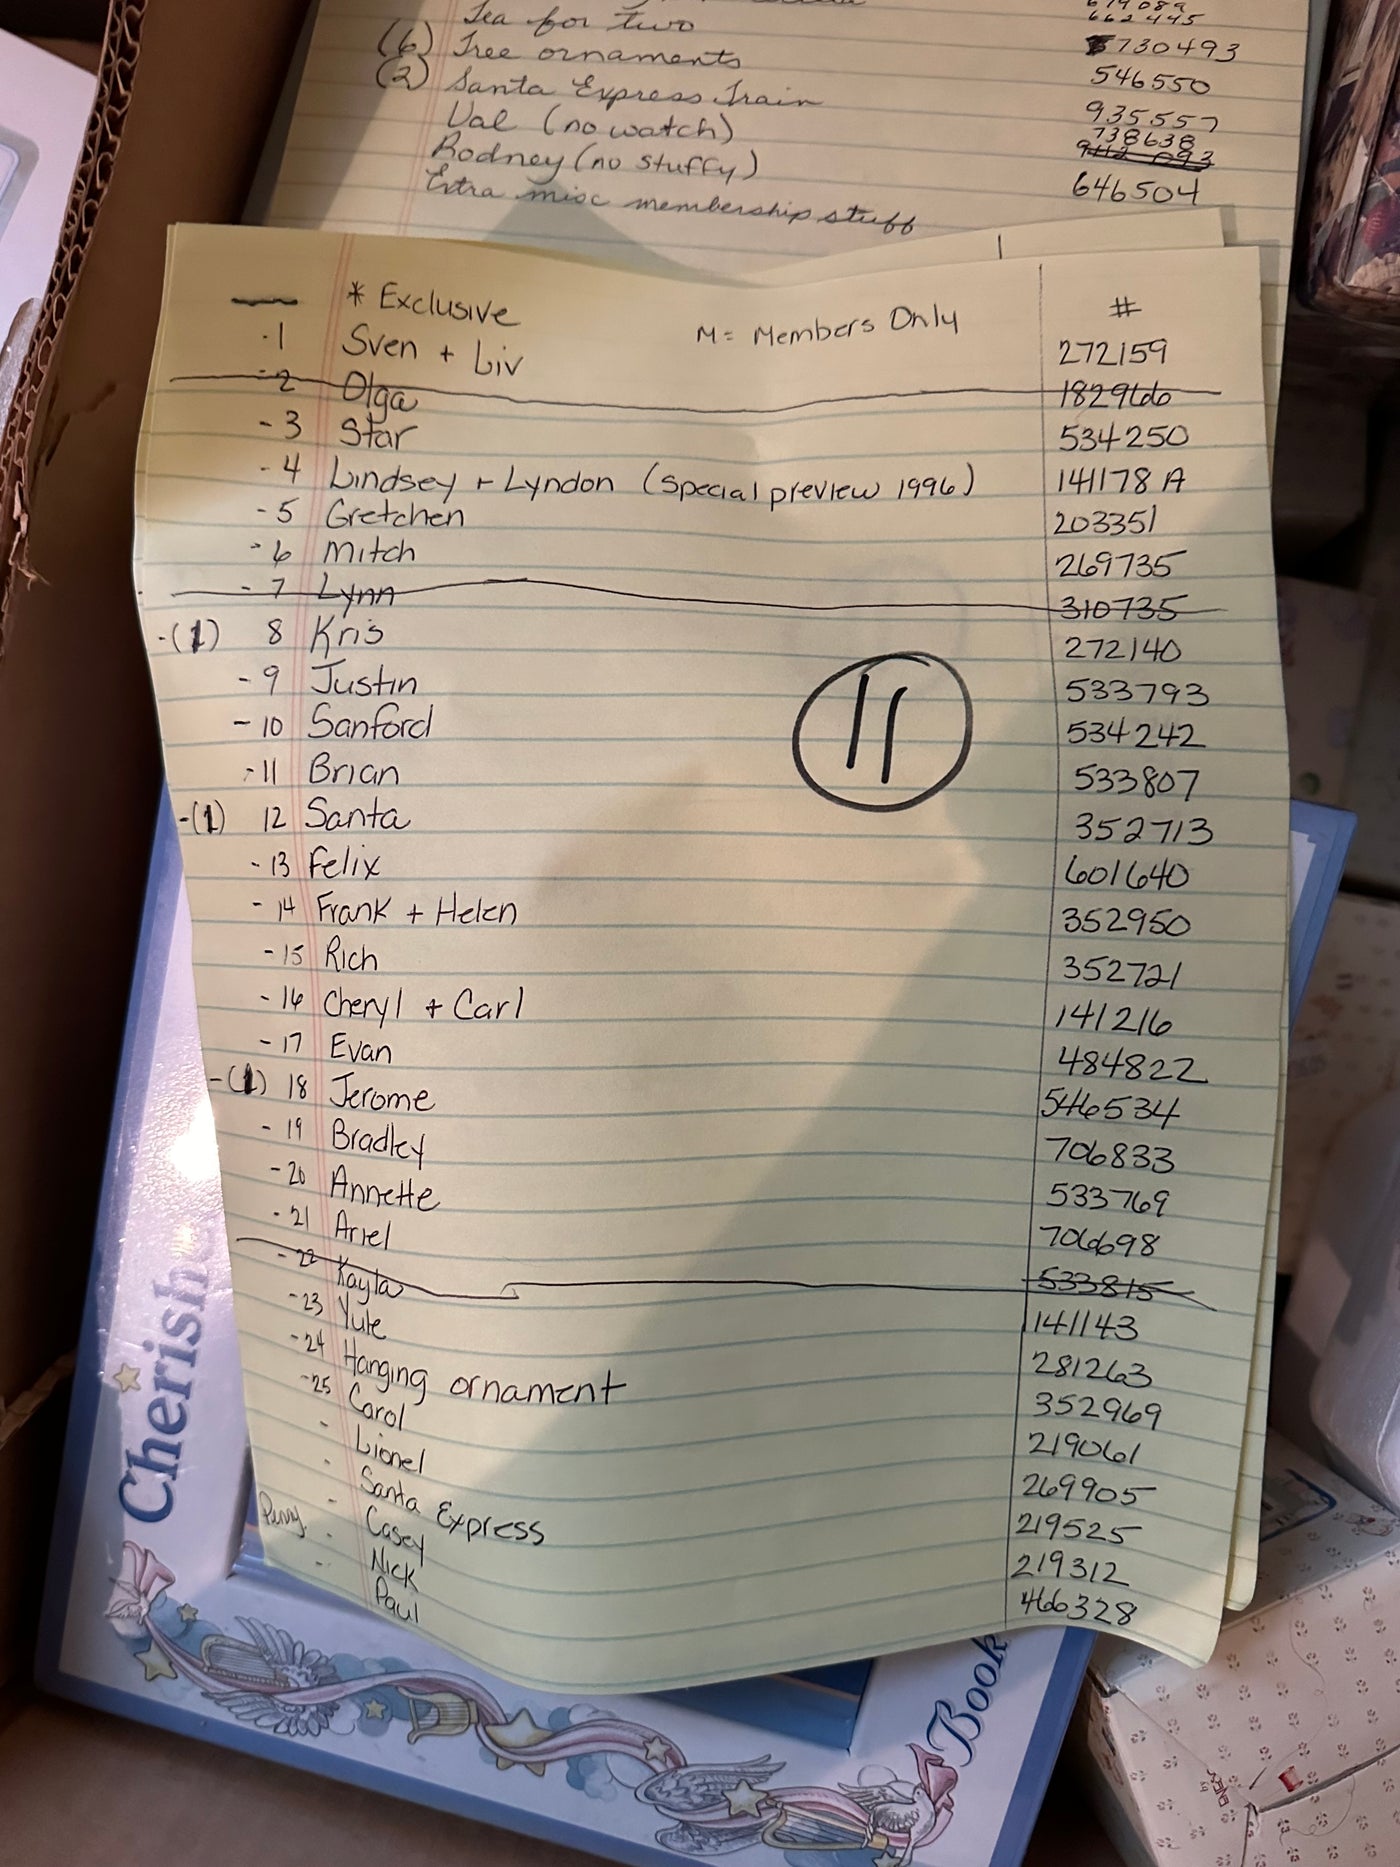 674089
Tea for two 662445
(6) Tree ornaments 730493
(2) Santa Express Train 546550
Val (no watch) 935557
738638
Rodney (no stuffy) 912093
Extra misc membership stuff 646504
* Exclusive M= Members Only #
-1 Sven + Liv 272159
-2 Olga 182966
-3 Star 534250
-4 Lindsey + Lyndon (special preview 1996) 141178A
-5 Gretchen 203351
-6 Mitch 269735
-7 Lynn 310735
-(1) 8 Kris 272140
-9 Justin 533793
-10 Sanford 534242
-11 Brian 533807
11
-(1) 12 Santa 352713
-13 Felix 601640
-14 Frank + Helen 352950
-15 Rich 352721
-16 Cheryl + Carl 141216
-17 Evan 484822
-(1) 18 Jerome 546534
-19 Bradley 706833
-20 Annette 533769
-21 Ariel 706698
-22 Kayla 533815
-23 Yule 141143
-24 Hanging ornament 281263
-25 Carol 352969
- Lionel 219061
- Santa Express 269905
- Casey 219525
Penny - Nick 219312
- Paul 466328
Cherish
Book